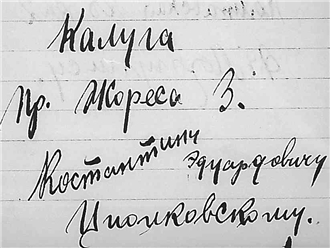 Калуга
Пр. Жореса 3.
Костантину Эдуардовичу
Циолковскому.